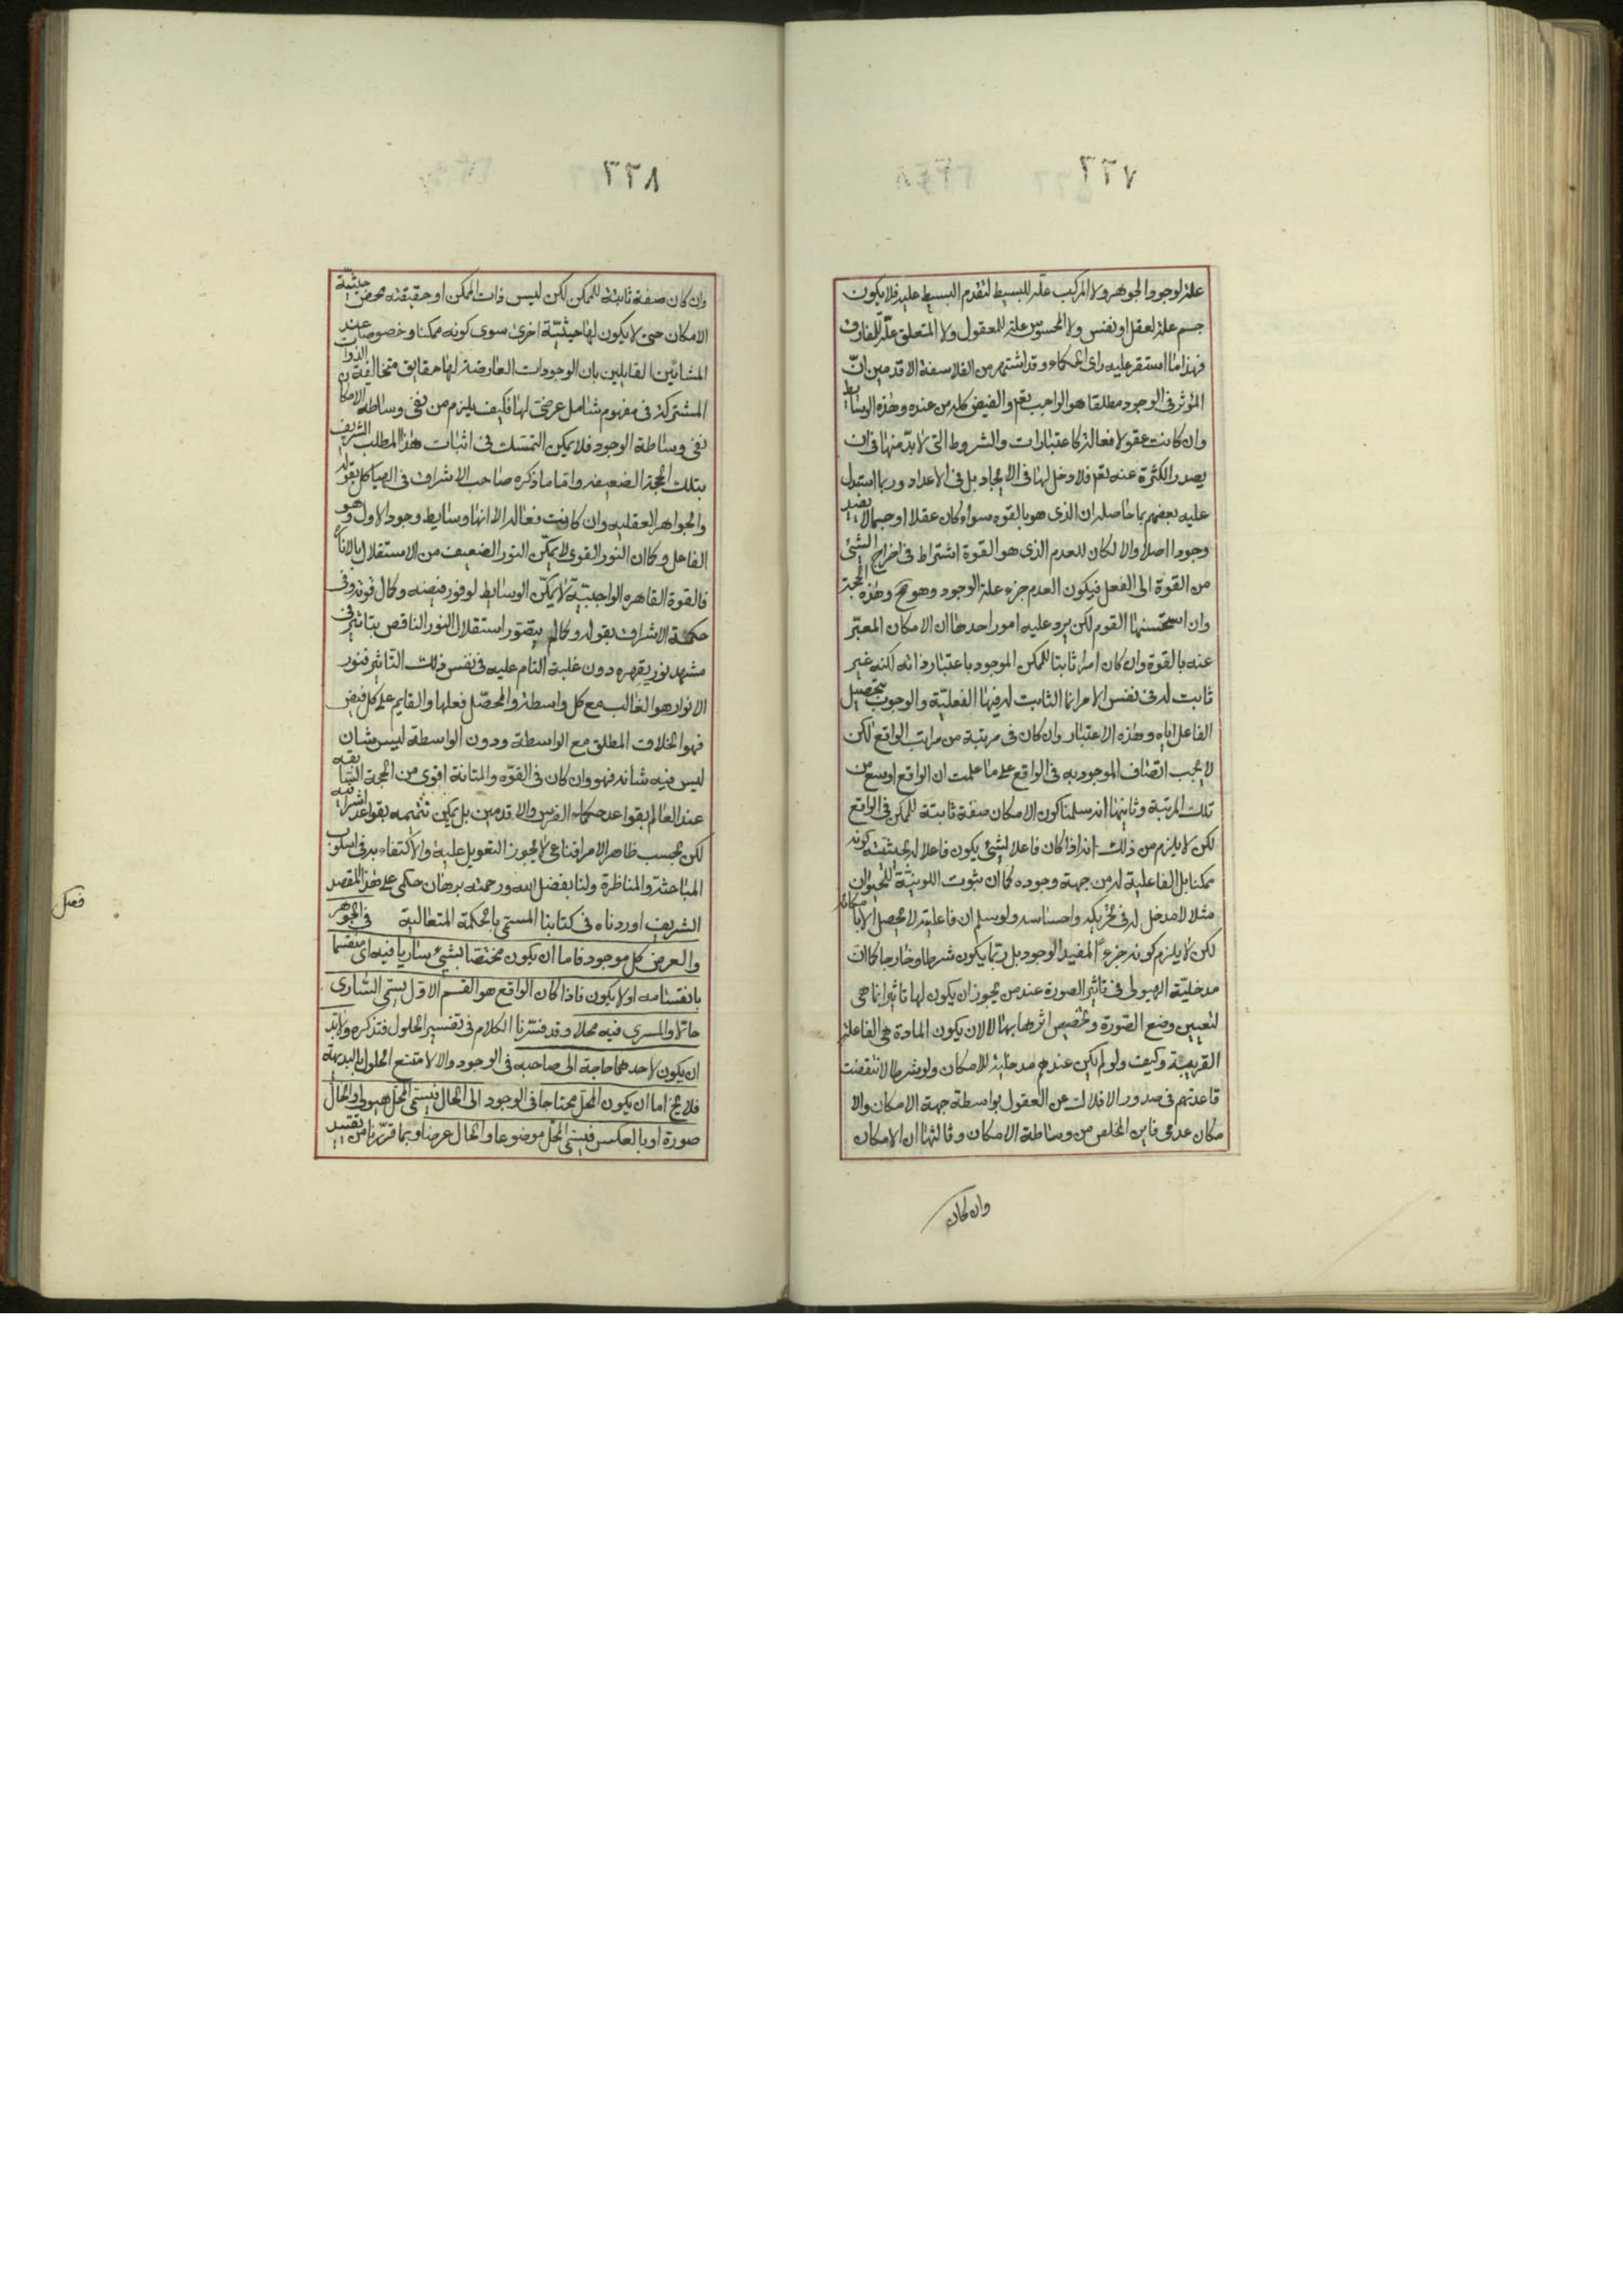 ٣٣٧
علة لوجود الجوهر ولا المركب علة للبسيط لتقدم البسيط عليه فلا يكون
جسم علة لعقل او نفس ولا المحسوس علة للمعقول ولا المتعلق علة للمفارق
فهذا ما استقر عليه راى الحكماء وقد اشتهر من الفلاسفة الاقدمين انّ
المؤثر فى الوجود مطلقا هو الواجب تعم والفيض كله من عنده وهذه الوسايط
وان كانت عقولا فعالة كاعتبارات والشروط التى لا بدّ منها فى ان
يصدر الكثرة عنه تعم فلا دخل لها فى الايجاد بل فى الاعداد وربما استدل
عليه بعضهم بما حاصله ان الذى هو بالقوه سواء كان عقلا او جسما لا يفيد
وجودا اصلا والا لكان للعدم الذى هو القوة اشتراط فى اخراج الشئ
من القوة الى الفعل فيكون العدم جزء علة الوجود وهو مح وهذه الحجة
وان استحسنها القوم لكن يرد عليه امور احدها ان الامكان المعبّر
عنه بالقوة وان كان امرا ثابتا للممكن الموجود باعتبار ذاته لكنه غير
ثابت له فى نفس الامر انما الثابت له فيها الفعليّة والوجوب بتحصيل
الفاعل اياه وهذه الاعتبار وان كان فى مرتبة من مراتب الواقع لكن
لا يجب اتصاف الموجود به فى الواقع على ما علمت ان الواقع اوسع من
تلك المرتبة وثانيها انه سلمنا كون الامكان صفة ثابتة للممكن فى الواقع
لكن لا يلزم من ذلك انه اذا كان فاعلا لشئ يكون فاعلا له بحيثية كونه
ممكنا بل الفاعلية له من جهة وجوده كما ان ثبوت اللونيّة للحيوان
مثلا لا مدخل له فى تحريكه واحساسه ولو سلم ان فاعليته لا يحصل الا بامكانه
لكن لا يلزم كونه جزءً المفيد الوجود بل ربّما يكون شرطا وخارجا كما ان
مدخليّة الهيولى فى تاثير الصورة عند من يجوز ان يكون لها تاثير انما هى
لتعيين وضع الصورة وتخصيص اثرها بها لا لان يكون المادة هى الفاعلة
القريبة وكيف ولو لم يكن عندهم مدخلية للامكان ولو شرطا لانتقضت
قاعدتهم فى صدور الافلاك عن العقول بواسطة جهة الامكان والا
مكان عدمى فاين المخلص من وساطة الامكان وثالثها ان الامكان
وان كان
٣٣٨
وان كان صفة ثابتة للممكن لكن ليس ذات الممكن او حقيقته محض حيثيّة
الامكان حتى لا يكون لها حيثيّة اخرى سوى كونه ممكنا وخصوصا عند
المشائين القايلين بان الوجودات العارضة لها حقايق متخالفة الذوات
المشتركة فى مفهوم شامل عرضى لها فكيف يلزم من نفى وساطة الامكان
نفى وساطة الوجود فلا يمكن التمسّك فى اثبات هذا المطلب الشريف
بتلك الحجة الضعيفة واما ما ذكره صاحب الاشراق فى الهياكل بقوله
والجواهر العقليه وان كانت فعالة الا انها وسايط وجود الاول وهو
الفاعل وكما ان النور القوى لا يمكّن النور الضعيف من الاستقلال بالانارة
فالقوة القاهره الواجبيّة لا يمكّن الوسايط لوفور فيضه وكمال قوته وفى
حكمة الاشراق بقوله وكما لم يتصور استقلال النور الناقص بتاثير فى
مشهد نور يقهره دون غلبة التام عليه فى نفس ذلك التاثير فنور
الانوار هو الغالب مع كل واسطة والمحصّل فعلها والقايم على كل فيض
فهو الخلاق المطلق مع الواسطة ودون الواسطة ليس شان
ليس فيه شانه فهو وان كان فى القوّه والمتانة اقوى من الحجة السّابقه
عند العالم بقواعد حكماء الفرس والاقدمين بل يمكن تتميمه بقواعد اشراقيه
لكن بحسب ظاهر الامر اقناعى لا يجوز التعويل عليه والاكتفاء به فى اسلوب
المباحثة والمناظرة ولنا بفضل الله ورحمته برهان حكمى على هذا المقصد
الشريف اوردناه فى كتابنا المسمّى بالحكمة المتعالية فى الجوهر
فصل
والعرض كل موجود فاما ان يكون مختصا بشئ ساريا فيه اى منقسما
بانقسامه او لا يكون فاذا كان الواقع هو القسم الاوّل يسمى السّارى
حالا والمسرى فيه محلا وقد فسّرنا الكلام فى تفسير الحلول فتذكره ولا بد
ان يكون لاحدهما حاجة الى صاحبه فى الوجود والا لامتنع الحلول بالبديهة
فلا يخ اما ان يكون المحلّ محتاجا فى الوجود الى الحال فيسمّى المحلّ هيولى والحال
صورة او بالعكس فيسمّى المحلّ موضوعا والحال عرضا وبما قرّرنا من تقييد